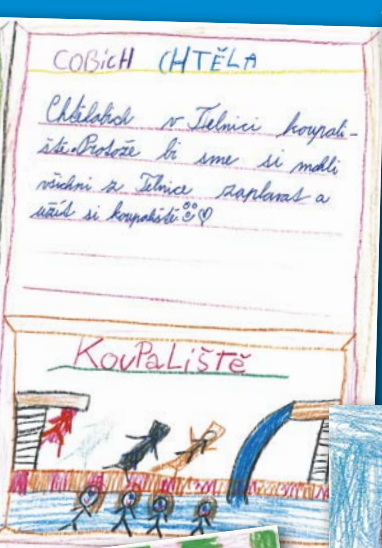 COBiCH CHTĚLA
Chtělabich v Telnici koupali-
ště. Protože bi sme si mohli
všichni z Telnice zaplavat a
užít si koupaliště
KouPaLiště